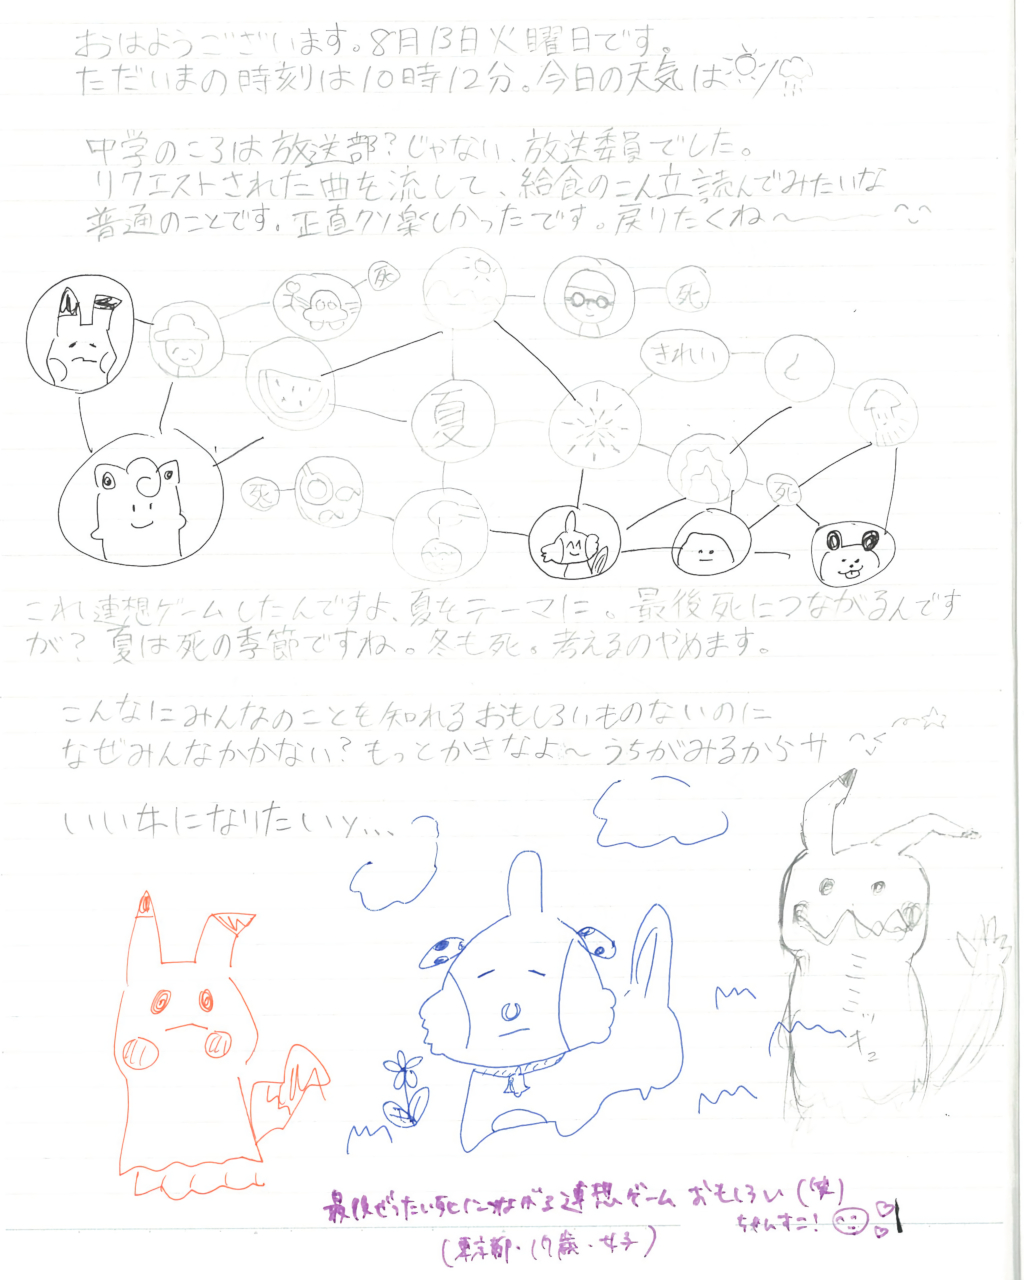 おはようございます。8月13日火曜日です。
ただいまの時刻は10時12分。今日の天気は
中学のころは放送部?じゃない、放送委員でした。
リクエストされた曲を流して、給食のこん立読んでみたいな
普通のことです。正直クソ楽しかったです。戻りたくね〜
死
死
きれい
夏
死
死
これ連想ゲームしたんですよ、夏をテーマに。最後死につながるんです
が?夏は死の季節ですね。冬も死。考えるのやめます。
こんなにみんなのことも知れるおもしろいものないのに
なぜみんなかかない?もっとかきなよ〜うちがみるからサ
いい牛になりたいッ...
ミミッキュ
最後ぜったい死につながる連想ゲームおもしろい(笑)
ちゃんすこ!
(東京都・17歳・女子)